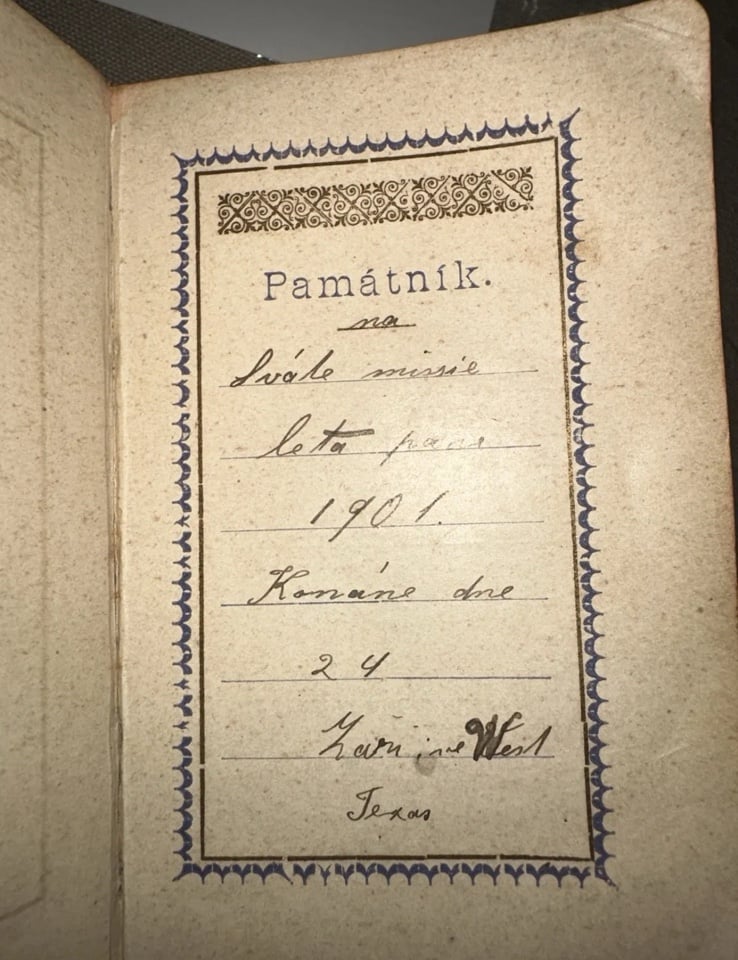 Památník.
na
Sváte missie
leta pana
1901.
Konáne dne
24
Zaři, ve West
Texas